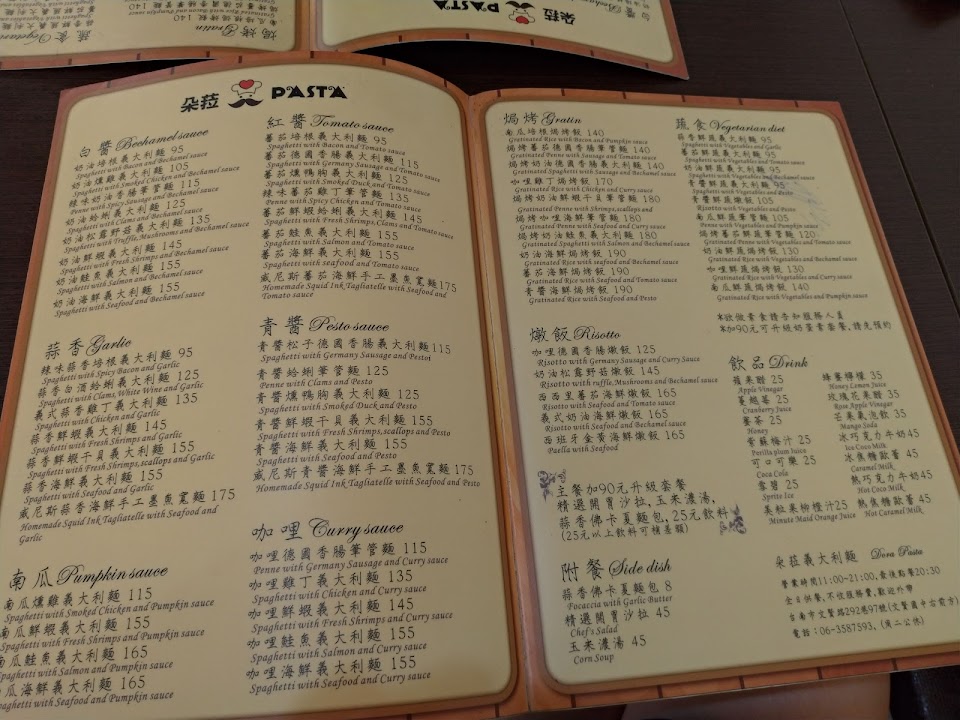 朵菈 PASTA
白醬 Bechamel sauce
奶油培根義大利麵 95
Spaghetti with Bacon and Bechamel sauce
奶油燻雞義大利麵 105
Spaghetti with Smoked Chicken and Bechamel sauce
辣味奶油香腸筆管麵 115
Penne with Spicy Sausage and Bechamel sauce
奶油蛤蜊義大利麵 125
Spaghetti with Clams and Bechamel sauce
奶油松露野菇義大利麵 135
Spaghetti with Truffle, Mushrooms and Bechamel sauce
奶油鮮蝦義大利麵 145
Spaghetti with Fresh Shrimps and Bechamel sauce
奶油鮭魚義大利麵 155
Spaghetti with Salmon and Bechamel sauce
奶油海鮮義大利麵 155
Spaghetti with Seafood and Bechamel sauce
蒜香 Garlic
辣味蒜香培根義大利麵 95
Spaghetti with Spicy Bacon and Garlic
蒜香白酒蛤蜊義大利麵 125
Spaghetti with Clams, White Wine and Garlic
義式蒜香雞丁義大利麵 135
Spaghetti with Chicken and Garlic
蒜香鮮蝦義大利麵 145
Spaghetti with Fresh Shrimps and Garlic
蒜香鮮蝦干貝義大利麵 155
Spaghetti with Fresh Shrimps, scallops and Garlic
蒜香海鮮義大利麵 155
Spaghetti with Seafood and Garlic
威尼斯蒜香海鮮手工墨魚寬麵 175
Homemade Squid Ink Tagliatelle with Seafood and
Garlic
南瓜 Pumpkin sauce
南瓜燻雞義大利麵 115
Spaghetti with Smoked Chicken and Pumpkin sauce
南瓜鮮蝦義大利麵 155
Spaghetti with Fresh Shrimps and Pumpkin sauce
南瓜鮭魚義大利麵 165
Spaghetti with Salmon and Pumpkin sauce
南瓜海鮮義大利麵 165
Spaghetti with Seafood and Pumpkin sauce
紅醬 Tomato sauce
蕃茄培根義大利麵 95
Spaghetti with Bacon and Tomato sauce
蕃茄德國香腸義大利麵 115
Spaghetti with Sausage and Tomato sauce
蕃茄燻鴨胸義大利麵 125
Spaghetti with Smoked Duck and Tomato sauce
辣味蕃茄雞丁筆管麵 135
Penne with Spicy Chicken and Tomato sauce
蕃茄鮮蝦蛤蜊義大利麵 145
Spaghetti with Fresh Shrimps, Clams and Tomato sauce
蕃茄鮭魚義大利麵 155
Spaghetti with Salmon and Tomato sauce
蕃茄海鮮義大利麵 155
Spaghetti with seafood and Tomato sauce
威尼斯蕃茄海鮮手工墨魚寬麵175
Homemade Squid Ink Tagliatelle with Seafood and
Tomato sauce
青醬 Pesto sauce
青醬松子德國香腸義大利麵115
Spaghetti with Germany Sausage and Pestot
青醬蛤蜊筆管麵 125
Penne with Clams and Pesto
青醬燻鴨胸義大利麵 125
Spaghetti with Smoked Duck and Pesto
青醬鮮蝦干貝義大利麵 155
Spaghetti with Fresh Shrimps, scallops and Pesto
青醬海鮮義大利麵 155
Spaghetti with Seafood and Pesto
威尼斯青醬海鮮手工墨魚寬麵175
Homemade Squid Ink Tagliatelle with Seafood and Pesto
咖哩 Curry sauce
咖哩德國香腸筆管麵 115
Penne with Germany Sausage and Curry sauce
咖哩雞丁義大利麵 135
Spaghetti with Chicken and Curry sauce
咖哩鮮蝦義大利麵 145
Spaghetti with Fresh Shrimps and Curry sauce
咖哩鮭魚義大利麵 155
Spaghetti with Salmon and Curry sauce
咖哩海鮮義大利麵 155
Spaghetti with Seafood and Curry sauce
焗烤 Gratin
南瓜培根焗烤飯 140
Gratinated Rice with Bacon and Pumpkin sauce
焗烤蕃茄德國香腸筆管麵 140
Gratinated Penne with Sausage and Tomato sauce
焗烤奶油德國香腸義大利麵 140
Gratinated Spaghetti with Sausage and Bechamel sauce
咖哩雞丁焗烤飯 170
Gratinated Rice with Chicken and Curry sauce
焗烤奶油鮮蝦干貝筆管麵 180
Gratinated Penne with Shrimps, scallops and
焗烤咖哩海鮮筆管麵 180
Gratinated Penne with Seafood and Curry sauce
焗烤奶油鮭魚義大利麵 180
Gratinated Spaghetti with Salmon and Bechamel sauce
奶油海鮮焗烤飯 190
Gratinated Rice with Seafood and Bechamel sauce
蕃茄海鮮焗烤飯 190
Gratinated Rice with Seafood and Tomato sauce
青醬海鮮焗烤飯 190
Gratinated Rice with Seafood and Pesto
燉飯 Risotto
咖哩德國香腸燉飯 125
Risotto with Germany Sausage and Curry Sauce
奶油松露野菇燉飯 145
Risotto with ruffle, Mushrooms and Bechamel sauce
西西里蕃茄海鮮燉飯 165
Risotto with Seafood and Tomato sauce
義式奶油海鮮燉飯 165
Risotto with Seafood and Bechamel sauce
西班牙金黃海鮮燉飯 165
Paella with Seafood
主餐加90元升級套餐
精選開胃沙拉,玉米濃湯,
蒜香佛卡夏麵包,25元飲料
(25元以上飲料可補差額)
附餐 Side dish
蒜香佛卡夏麵包 8
Focaccia with Garlic Butter
精選開胃沙拉 45
Chef's Salad
玉米濃湯 45
Corn Soup
蔬食 Vegetarian diet
蒜香鮮蔬義大利麵 95
Spaghetti with Vegetables and Garlic
蕃茄鮮蔬義大利麵 95
Spaghetti with Vegetables and Tomato sauce
奶油鮮蔬義大利麵 95
Spaghetti with Vegetables and Bechamel sauce
青醬鮮蔬義大利麵 95
Spaghetti with Vegetables and Pesto
青醬鮮蔬燉飯 105
Risotto with Vegetables and Pesto
南瓜鮮蔬筆管麵 105
Penne with Vegetables and Pumpkin sauce
焗烤蕃茄鮮蔬筆管麵 120
Gratinated Penne with Vegetables and Tomato sauce
奶油鮮蔬焗烤飯 130
Gratinated Rice with Vegetables and Bechamel sauce
咖哩鮮蔬焗烤飯 130
Gratinated Rice with Vegetables and Curry sauce
南瓜鮮蔬焗烤飯 140
Gratinated Rice with Vegetables and Pumpkin sauce
*欲做素食請告知服務人員
*加90元可升級奶蛋素套餐,請先預約
飲品 Drink
蘋果醋 25
Apple Vinegar
蔓越莓 25
Cranberry Juice
蜜茶 25
Honey
紫蘇梅汁 25
Perilla plum Juice
可口可樂 25
Coca Cola
雪碧 25
Sprite Ice
美粒果柳橙汁25
Minute Maid Orange Juice
蜂蜜檸檬 35
Honey Lemon Juice
玫瑰花果醋 35
Rose Apple Vinegar
芒果氣泡飲 35
Mango Soda
冰巧克力牛奶45
Ice Coco Milk
冰焦糖歐蕾 45
Caramel Milk
熱巧克力牛奶45
Hot Coco Milk
熱焦糖歐蕾 45
Hot Caramel Milk
朵菈義大利麵 Dora Pasta
營業時間11:00~21:00,最後點餐20:30
全日供餐,不收服務費,歡迎外帶
台南市文賢路292巷97號(文賢國中右前方)
電話:06-3587593.(周二公休)